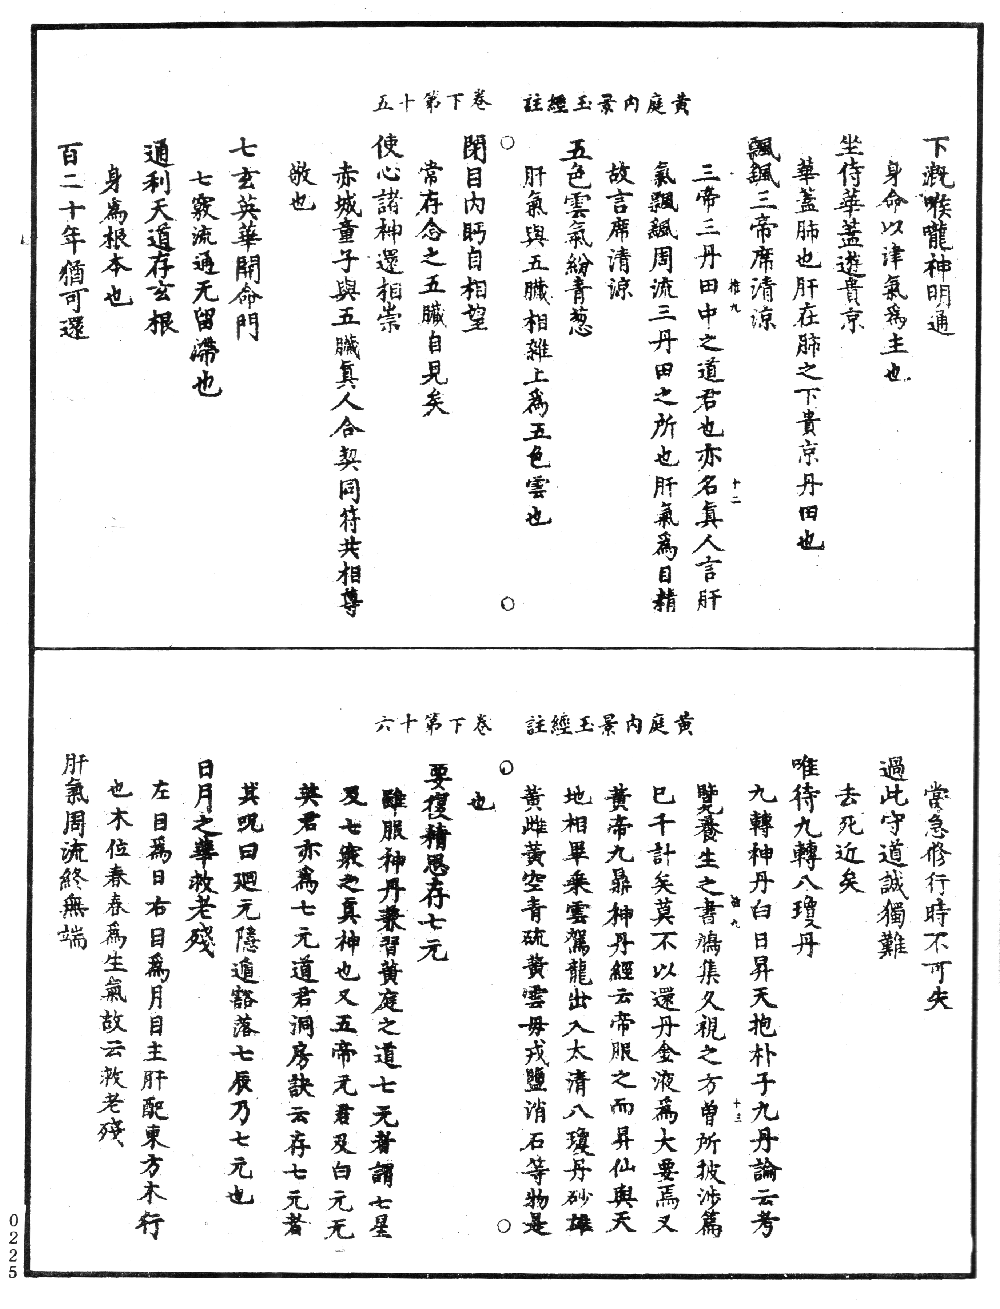 黄庭内景玉經註　卷下第十五
下溉喉嚨神明通
身命以津氣爲主也
坐侍華蓋遊貴京
華蓋肺也肝在肺之下貴京丹田也
飄颻三帝席清涼
三帝三丹田中之道君也亦名眞人言肝
氣飄颻周流三丹田之所也肝氣爲目精
故言席清涼
五色雲氣紛青葱
肝氣與五臟相雜上爲五色雲也
閉目内眄自相望
常存念之五臟自見矣
使心諸神還相崇
赤城童子與五臟眞人合契同符共相尊
敬也
七玄英華開命門
七竅流通无留滯也
通利天道存玄根
身爲根本也
百二十年猶可還
黄庭内景玉經註　卷下第十六
當急修行時不可失
過此守道誠獨難
去死近矣
唯待九轉八瓊丹
九轉神丹白日昇天抱朴子九丹論云考
覽養生之書鳩集久視之方曾所披涉篇
已千計矣莫不以還丹金液爲大要焉又
黄帝九鼎神丹經云帝服之而昇仙與天
地相畢乘雲駕龍出入太清八瓊丹砂雄
黄雌黄空青硫黄雲母戎鹽消石等物是
也
要復精思存七元
雖服神丹兼習黄庭之道七元者謂七星
及七竅之眞神也又五帝元君及白元无
英君亦爲七元道君洞房訣云存七元者
其呪曰廻元隱遁豁落七辰乃七元也
日月之華救老殘
左目爲日右目爲月目主肝配東方木行
也木位春春爲生氣故云救老殘
肝氣周流終無端
0225